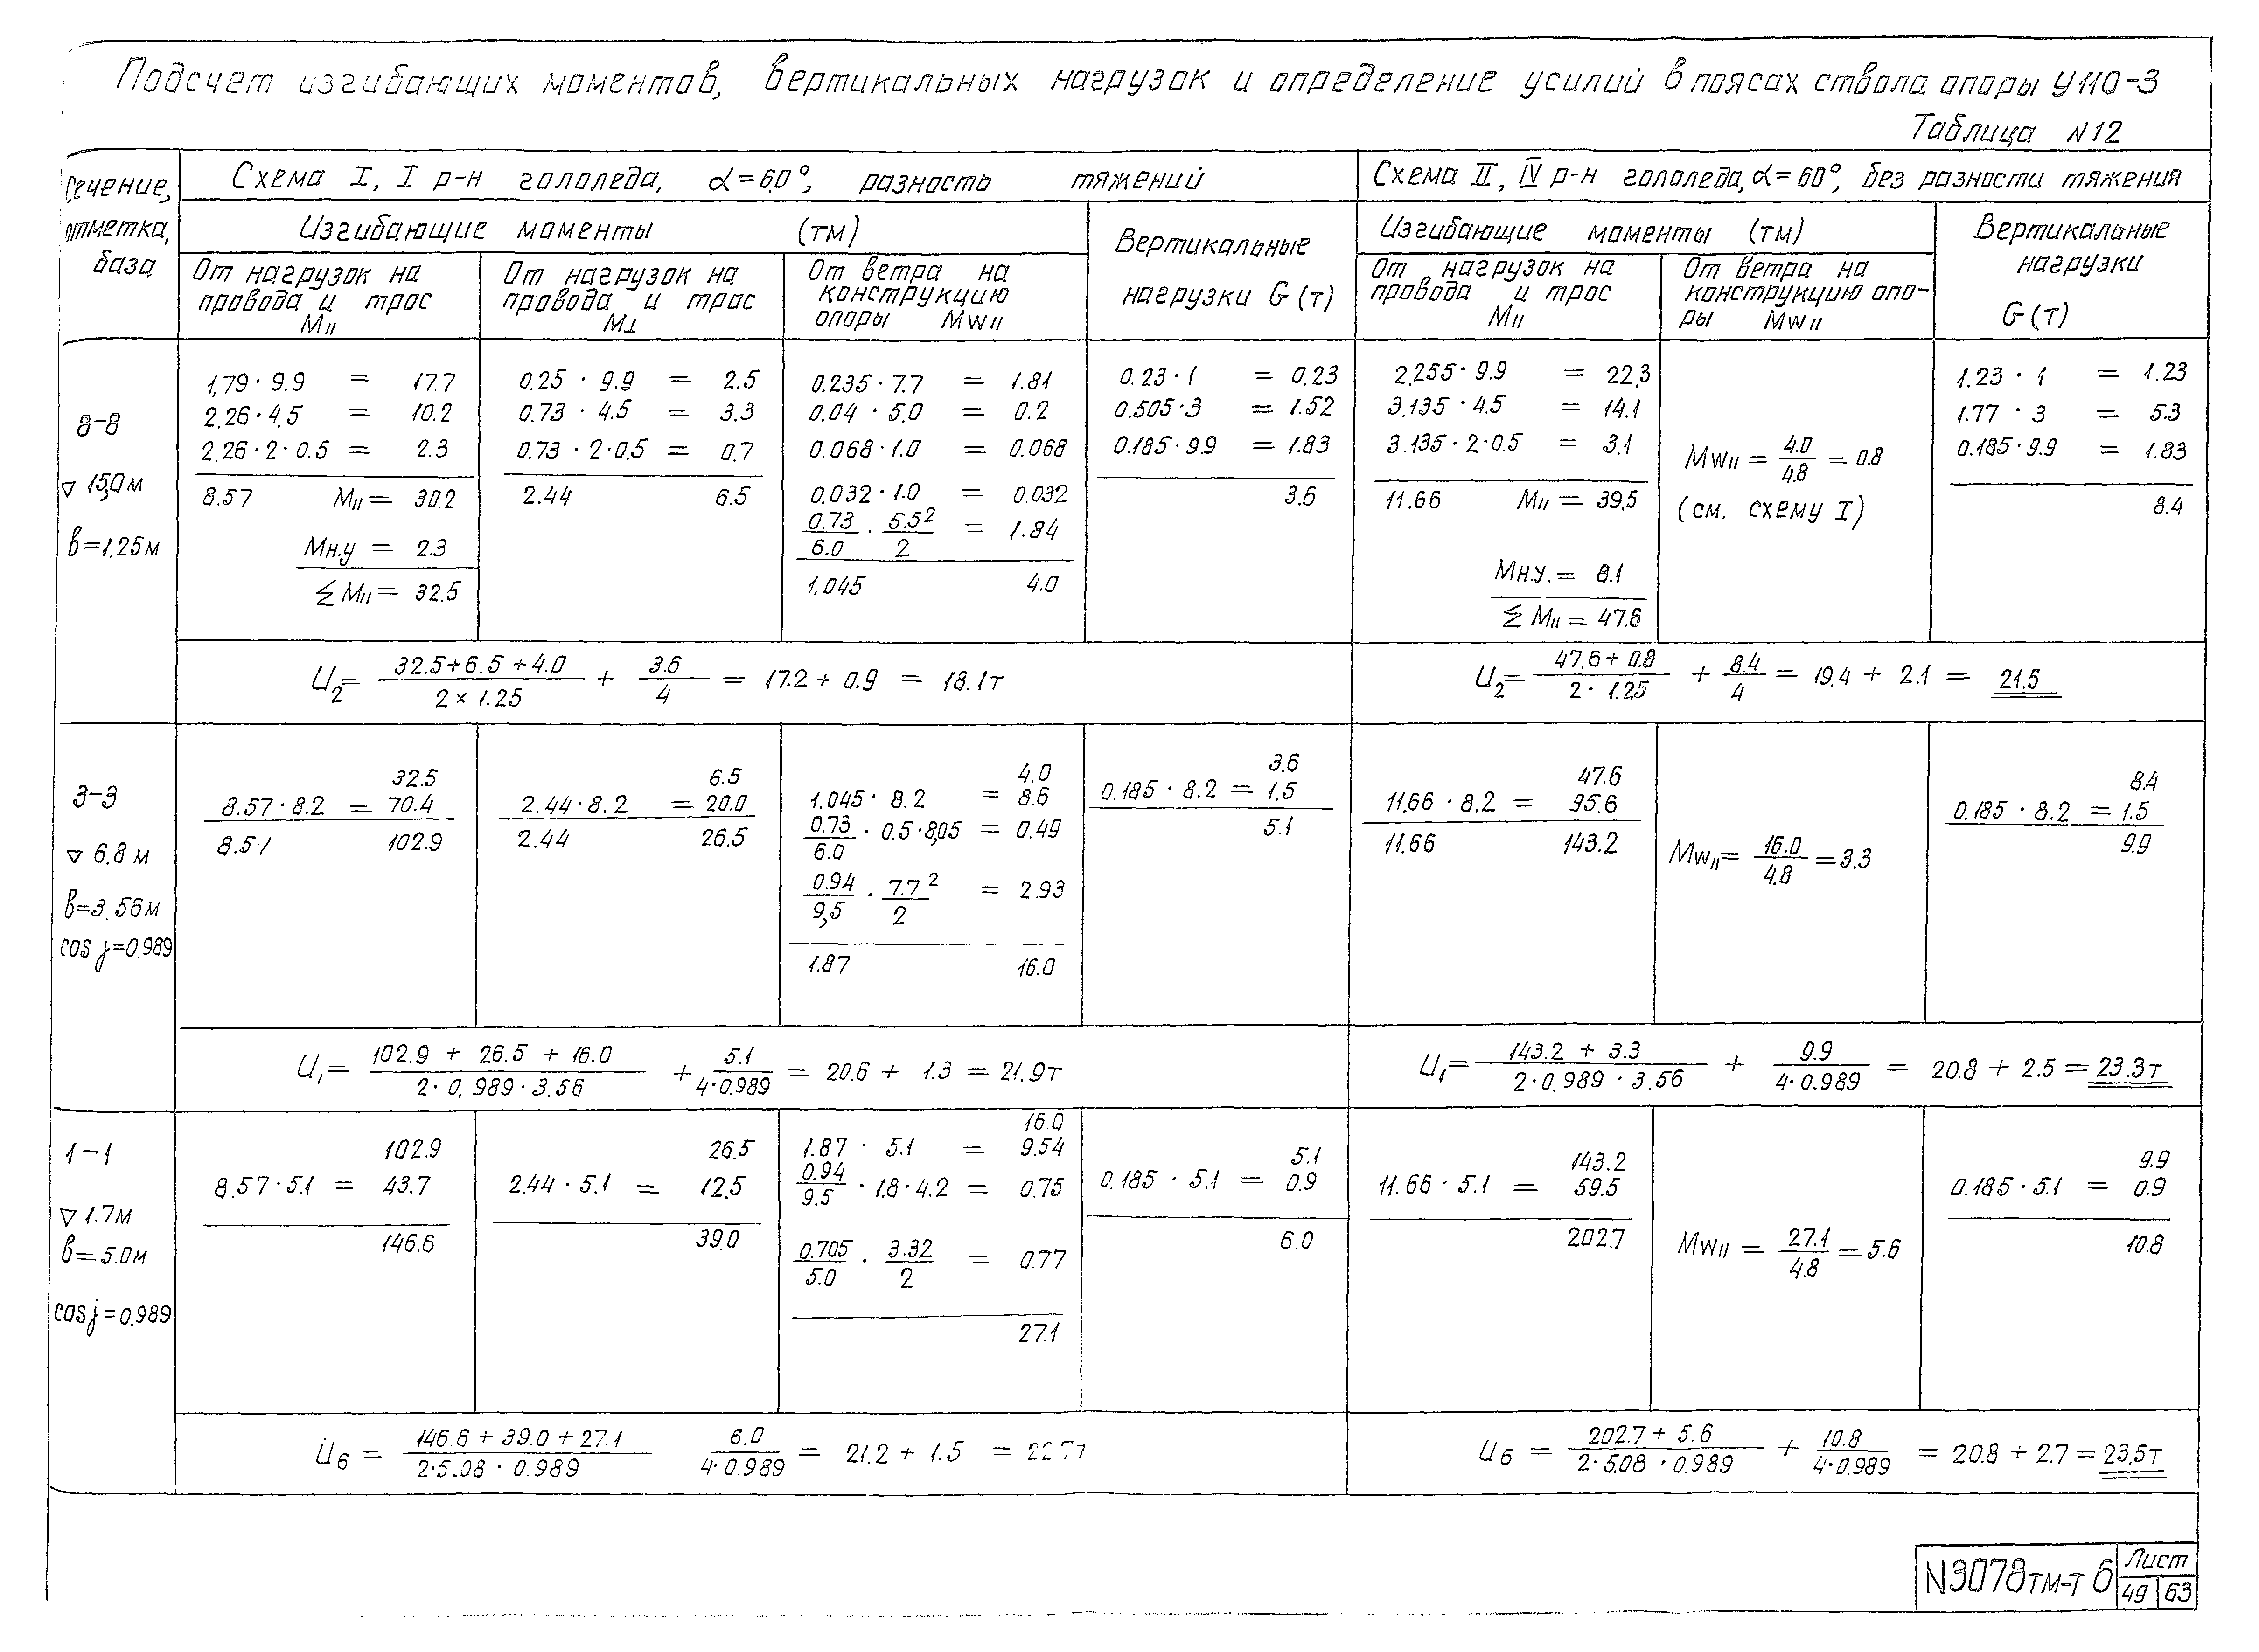 Подсчет изгибающих моментов, вертикальных нагрузок и определение усилий в поясах ствола опоры У110-3
Таблица N12
Сечение, отметка, база
Схема I, I р-н гололеда, α=60°, разность тяжений
Схема II, IV р-н гололеда, α=60°, без разности тяжения
Изгибающие моменты (тм)
Вертикальные нагрузки G (т)
Изгибающие моменты (тм)
Вертикальные нагрузки G (т)
От нагрузок на провода и трос M॥
От нагрузок на провода и трос M⊥
От ветра на конструкцию опоры MW॥
От нагрузок на провода и трос M॥
От ветра на конструкцию опоры MW॥
8-8
▽ 15,0м
в=1.25м
1,79·9.9 = 17.7
2.26·4.5 = 10.2
2.26·2·0.5 = 2.3
8.57 M॥= 30.2
Mн.у = 2.3
Σ M॥= 32.5
0.25·9.9 = 2.5
0.73·4.5 = 3.3
0.73·2·0.5 = 0.7
2.44 6.5
0.235·7.7 = 1.81
0.04·5.0 = 0.2
0.068·1.0 = 0.068
0.032·1.0 = 0.032
0.73/6.0 · 5.5²/2 = 1.84
1.045 4.0
0.23·1 = 0.23
0.505·3 = 1.52
0.185·9.9 = 1.83
3.6
2.255·9.9 = 22.3
3.135·4.5 = 14.1
3.135·2·0.5 = 3.1
11.66 M॥ = 39.5
Mн.у. = 8.1
Σ M॥ = 47.6
MW॥ = 4.0/4.8 = 0.8
(см. схему I)
1.23·1 = 1.23
1.77·3 = 5.3
0.185·9.9 = 1.83
8.4
U2= (32.5+6.5+4.0)/(2×1.25) + 3.6/4 = 17.2+0.9 = 18.1т
U2= (47.6+0.8)/(2·1.25) + 8.4/4 = 19.4 + 2.1 = 21.5
3-3
▽ 6.8 м
в=3.56м
cos j=0.989
32.5
8.57·8.2 = 70.4
8.57 102.9
6.5
2.44·8.2 = 20.0
2.44 26.5
4.0
1.045·8.2 = 8.6
0.73/6.0 · 0.5·8,05 = 0.49
0.94/9,5 · 7.7²/2 = 2.93
1.87 16.0
3.6
0.185·8.2 = 1.5
5.1
47.6
11.66·8.2 = 95.6
11.66 143.2
MW॥= 16.0/4.8 = 3.3
8.4
0.185·8.2 = 1.5
9.9
U1= (102.9 + 26.5 + 16.0)/(2·0,989·3.56) + 5.1/(4·0.989) = 20.6 + 1.3 = 21.9т
U1= (143.2 + 3.3)/(2·0.989·3.56) + 9.9/(4·0.989) = 20.8 + 2.5 = 23.3т
1-1
▽ 1.7м
в=5.0м
cos j=0.989
102.9
8.57·5.1 = 43.7
146.6
26.5
2.44·5.1 = 12.5
39.0
16.0
1.87·5.1 = 9.54
0.94/9.5 · 1.8·4.2 = 0.75
0.705/5.0 · 3.32/2 = 0.77
27.1
5.1
0.185·5.1 = 0.9
6.0
143.2
11.66·5.1 = 59.5
202.7
MW॥ = 27.1/4.8 = 5.6
9.9
0.185·5.1 = 0.9
10.8
U6 = (146.6 + 39.0 + 27.1)/(2·5.08·0.989) 6.0/(4·0.989) = 21.2 + 1.5 =
U6 = (202.7 + 5.6)/(2·5.08·0.989) + 10.8/(4·0.989) = 20.8 + 2.7 = 23.5т
N3078тм-т6
Лист
49 63